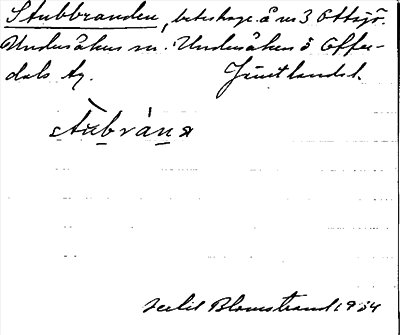 Stubbranden, beteshage å nr 3 Ottsjö.
Undersåkers sn. Undersåkers o Offer-
dals tg. Jämtlands l.
stùbránᴀ
Blomstrand 1934